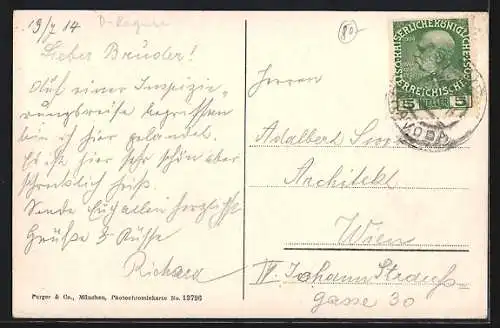 19/7 14
D-Ragusa
80
Lieber Bruder!
Auf einer Inspizie-
rungsreise begriffen
bin ich hier gelandet.
Es ist hier sehr schön aber
schrecklich heiß.
Sende Euch allen herzlichste
Grüße & Küsse
Richard
Purger & Co., München, Photochromiekarte No. 13796
KAISERLICHEKÖNIGLICHE
ÖSTERREICHISCHE
5 HELLER 5
Herrn
Adalbert
Architekt
Wien
IV. Johann Strauss-
gasse 30